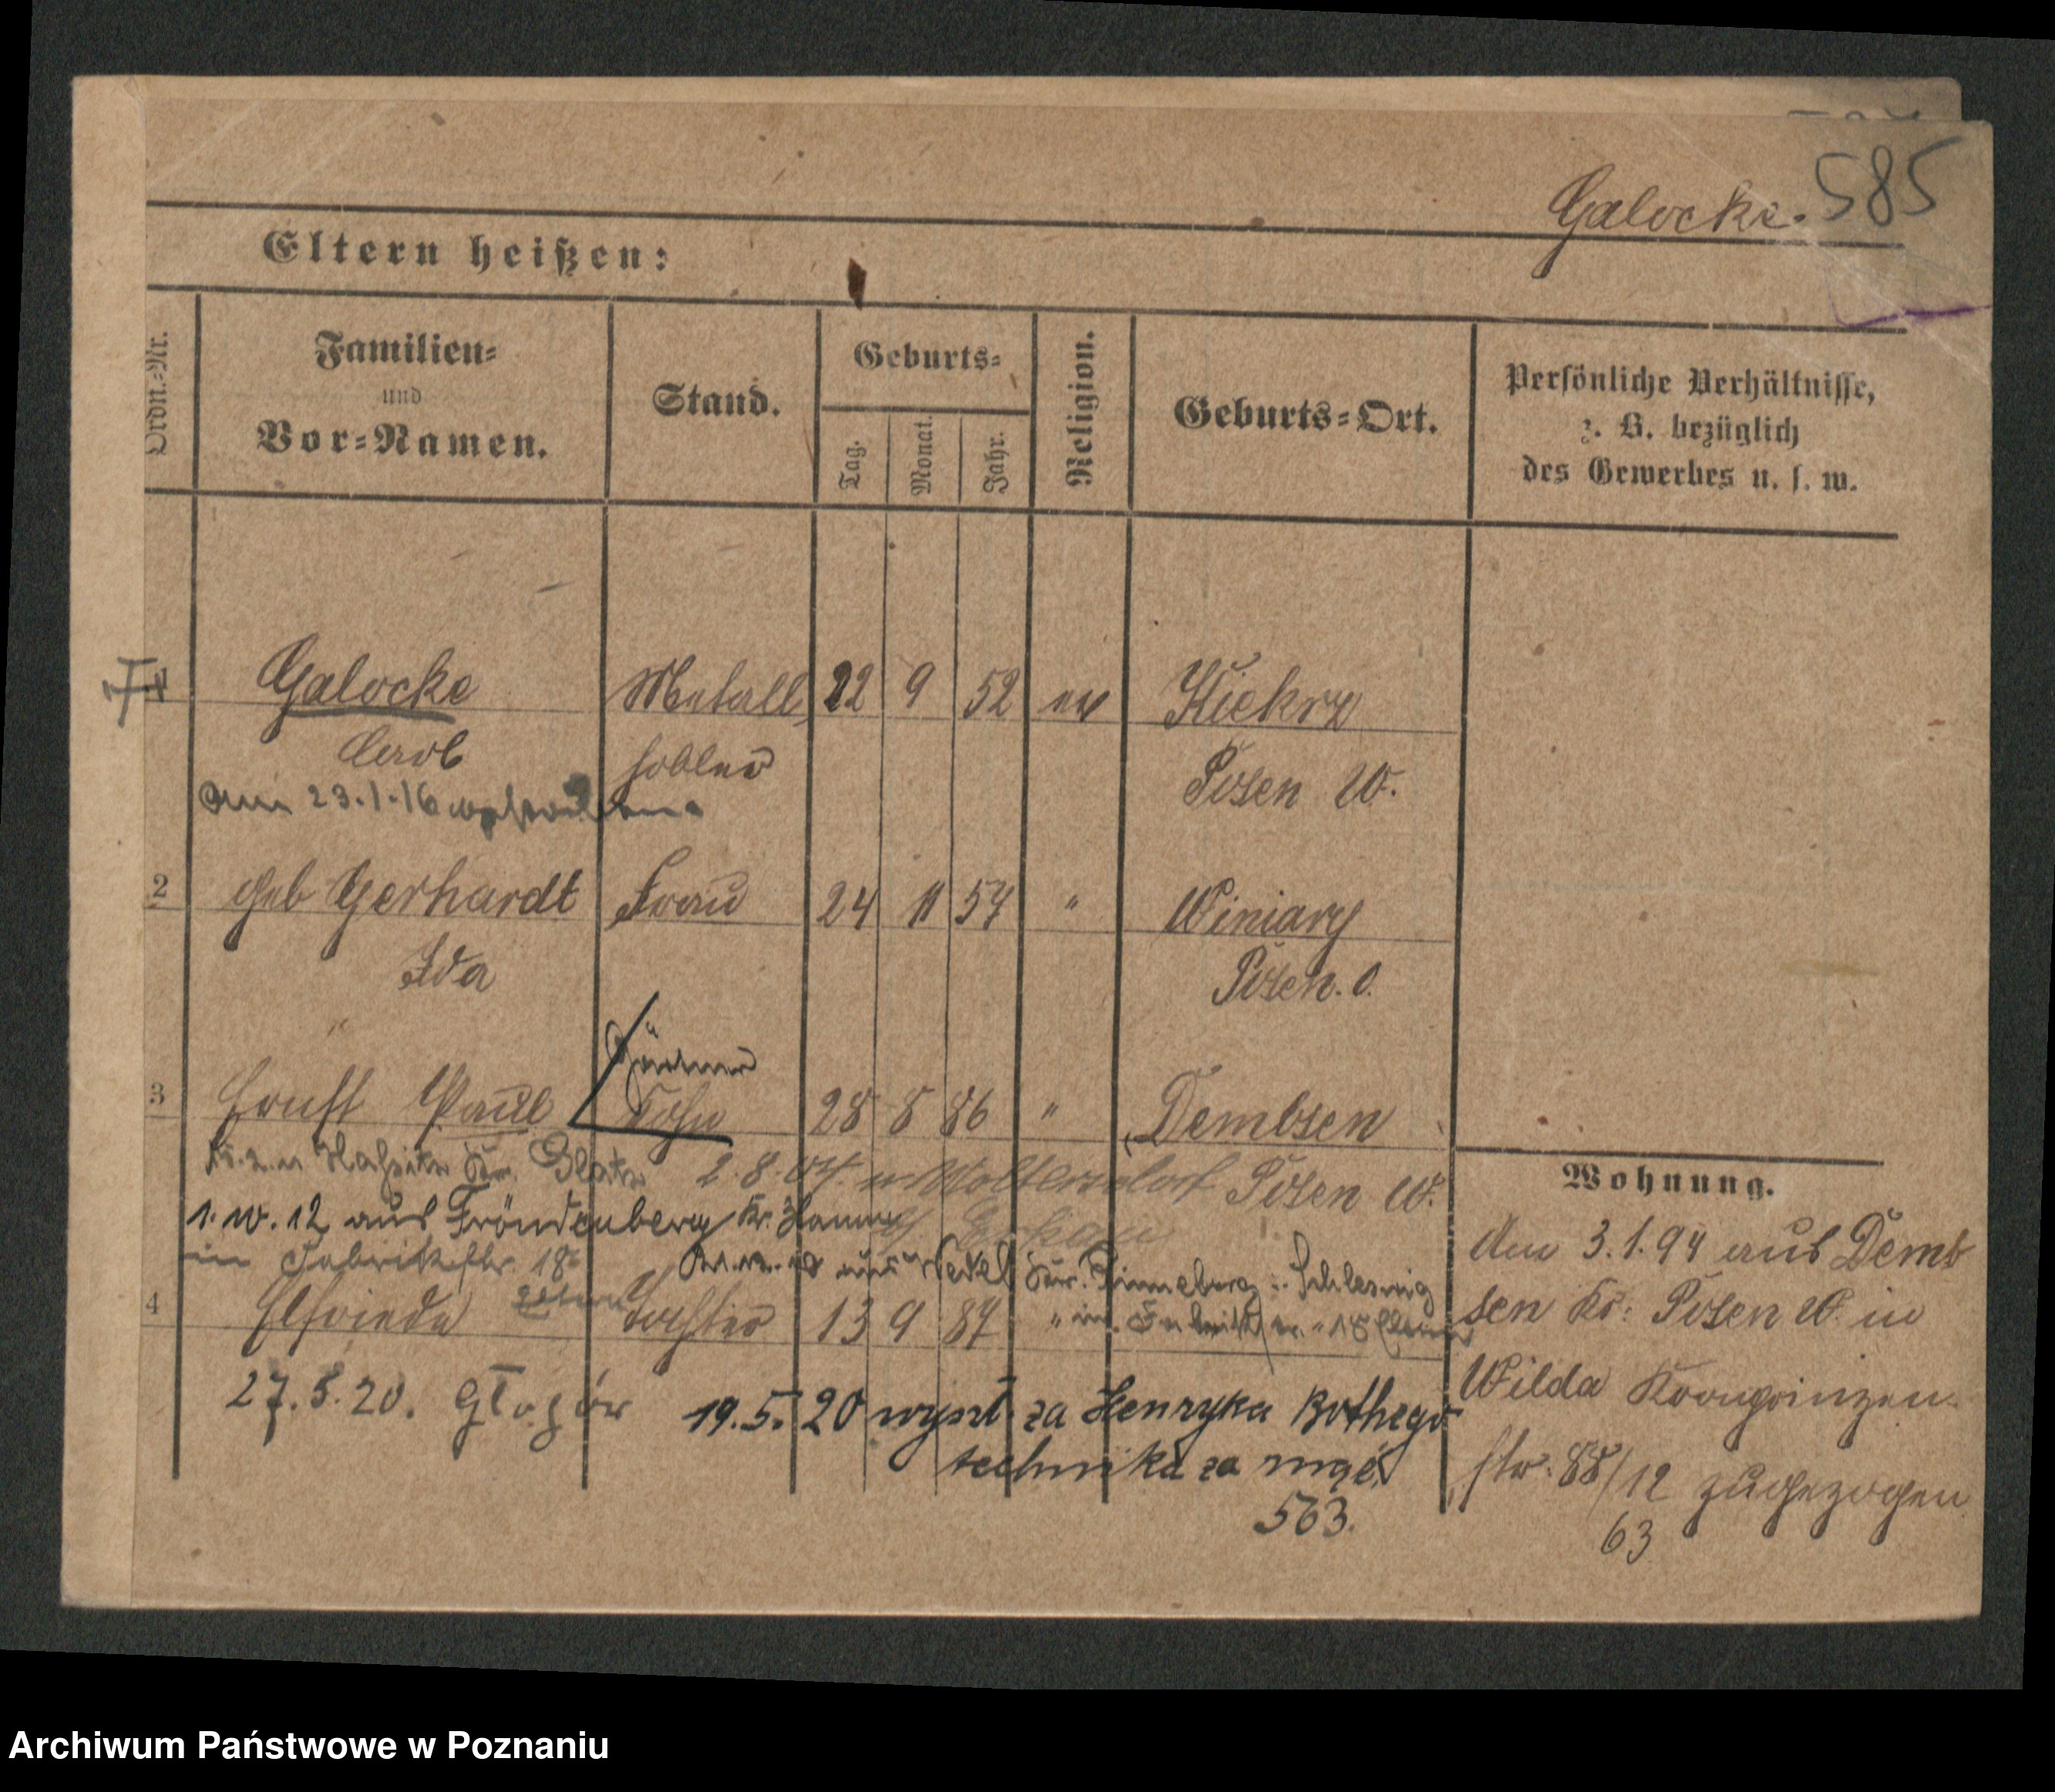 585
Galocke.
Eltern heißen:
Ordn.=Nr.
Familien=
und
Vor=Namen.
Stand.
Geburts=
Tag.
Monat.
Jahr.
Religion.
Geburts=Ort.
Persönliche Verhältnisse,
z. B. bezüglich
des Gewerbes u. s. w.
1 Galocke Metall 22 9 52 ev Kiekrz
Carl hobler Posen W.
am 23.1.16
2 geb Gerhardt Frau 24 11 57 " Winiary
Ida Posen. O.
Gärtner
3 Ernst Paul Sohn 28 8 86 " Dembsen
Glatz 2.8.04. n Woltersdorf Posen W.
1. 10. 12 aus Fröndenberg Kr. Hamm
in Fabrikstr. 18
aus Wedel Kr. Pinneberg Schleswig
4 Elfriede Tochter 13 9 87 " in 18 Eltern
27.5.20. 19.5.20 wyszł. za Henryka Bothego
technika za mąż
563.
Wohnung.
Am 3.1.94 aus Demb
sen Kr: Posen W. in
Wilda Kronprinzen
str. 88/12 zugezogen
63
Archiwum Państwowe w Poznaniu